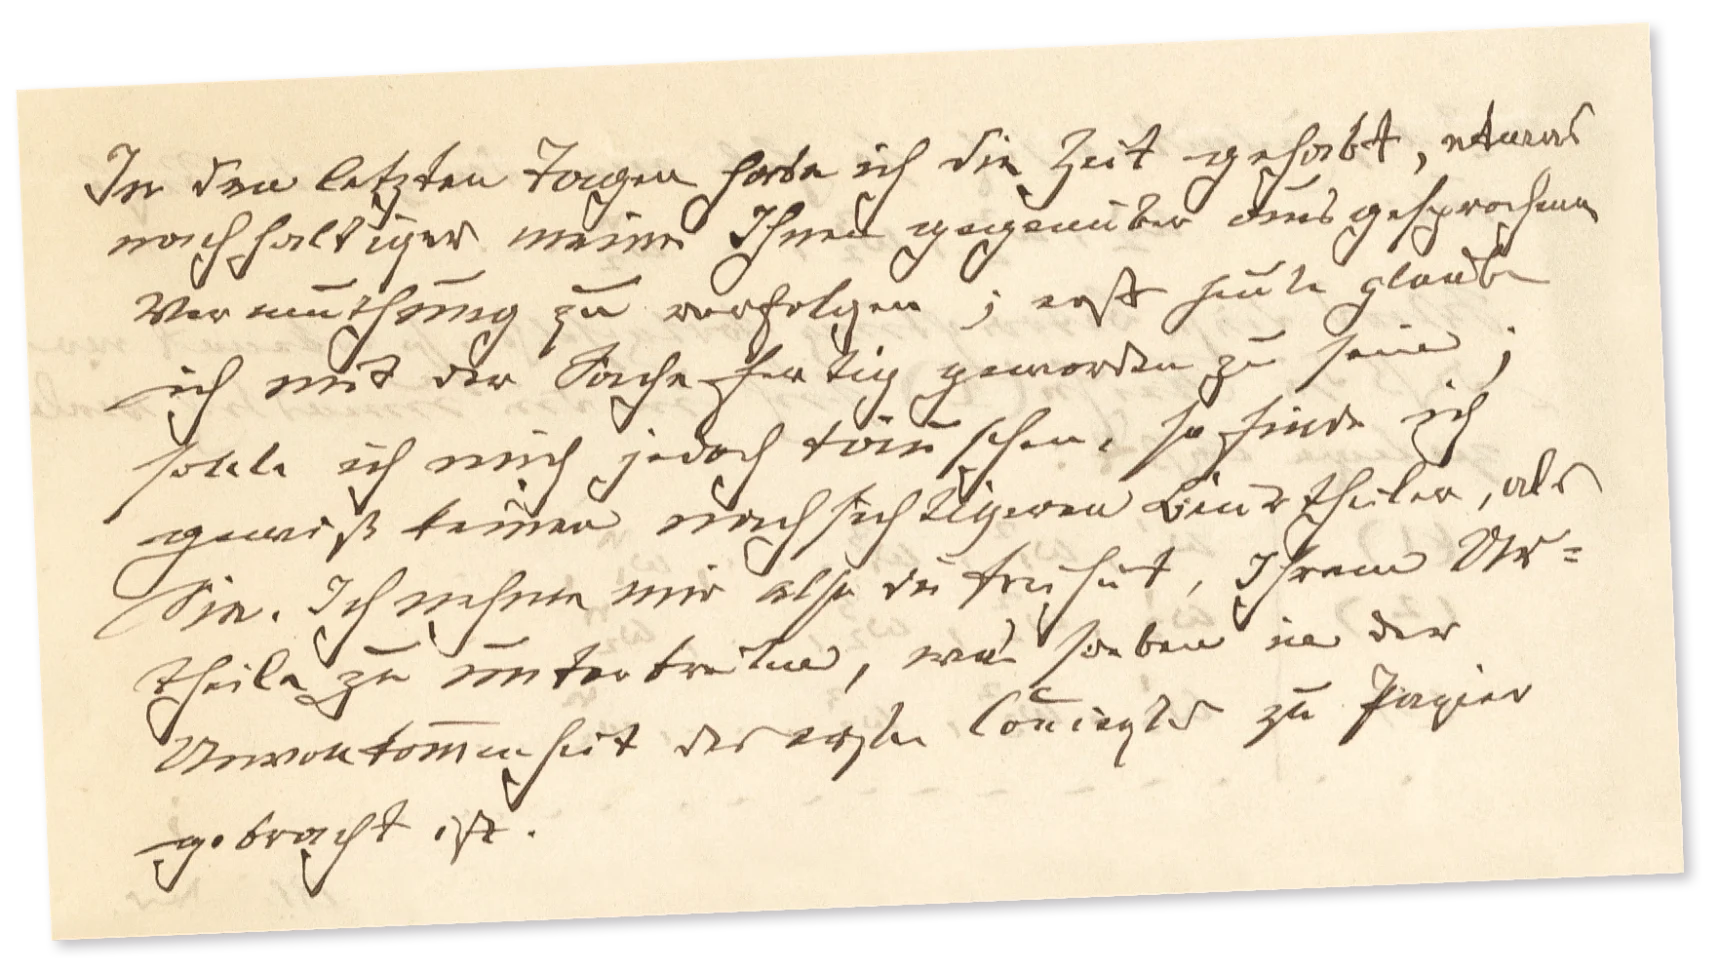 In den letzten Tagen habe ich die Zeit gehabt, etwas
nachhaltiger meine Ihnen gegenüber ausgesprochene
Vermuthung zu verfolgen; erst heute glaube
ich mit der Sache fertig geworden zu sein;
sollte ich mich jedoch täuschen, so finde ich
gewiß keinen nachsichtigeren Beurtheiler, als
Sie. Ich nehme mir also die Freiheit, Ihrem Ur=
theile zu unterbreiten, was soeben in der
Unvollkom̅enheit des ersten Conceptes zu Papier
gebracht ist.